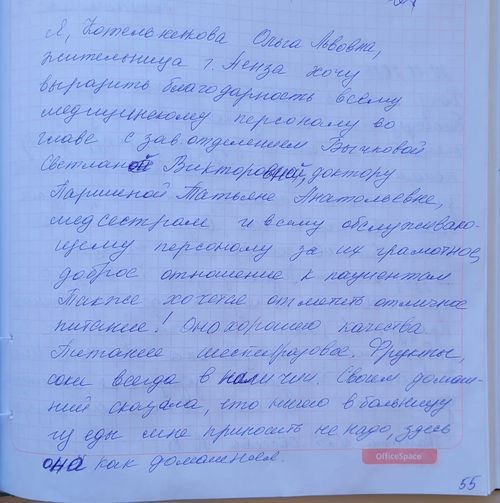 Я, Котельникова Ольга Львовна,
жительница г. Пенза хочу
выразить благодарность всему
медицинскому персоналу во
главе с зав. отделением Бычковой
Светланой Викторовной, доктору
Паршиной Татьяне Анатольевне,
медсестрам и всему обслуживаю-
щему персоналу за их грамотное,
доброе отношение к пациентам
Также хочется отметить отличное
питание! Оно хорошего качества
Питание шестиразовое. Фрукты,
соки всегда в наличии. Своим домаш-
ний сказала, что ничего в больницу
из еды мне приносить не надо, здесь
она как домашняя.
OfficeSpace
55